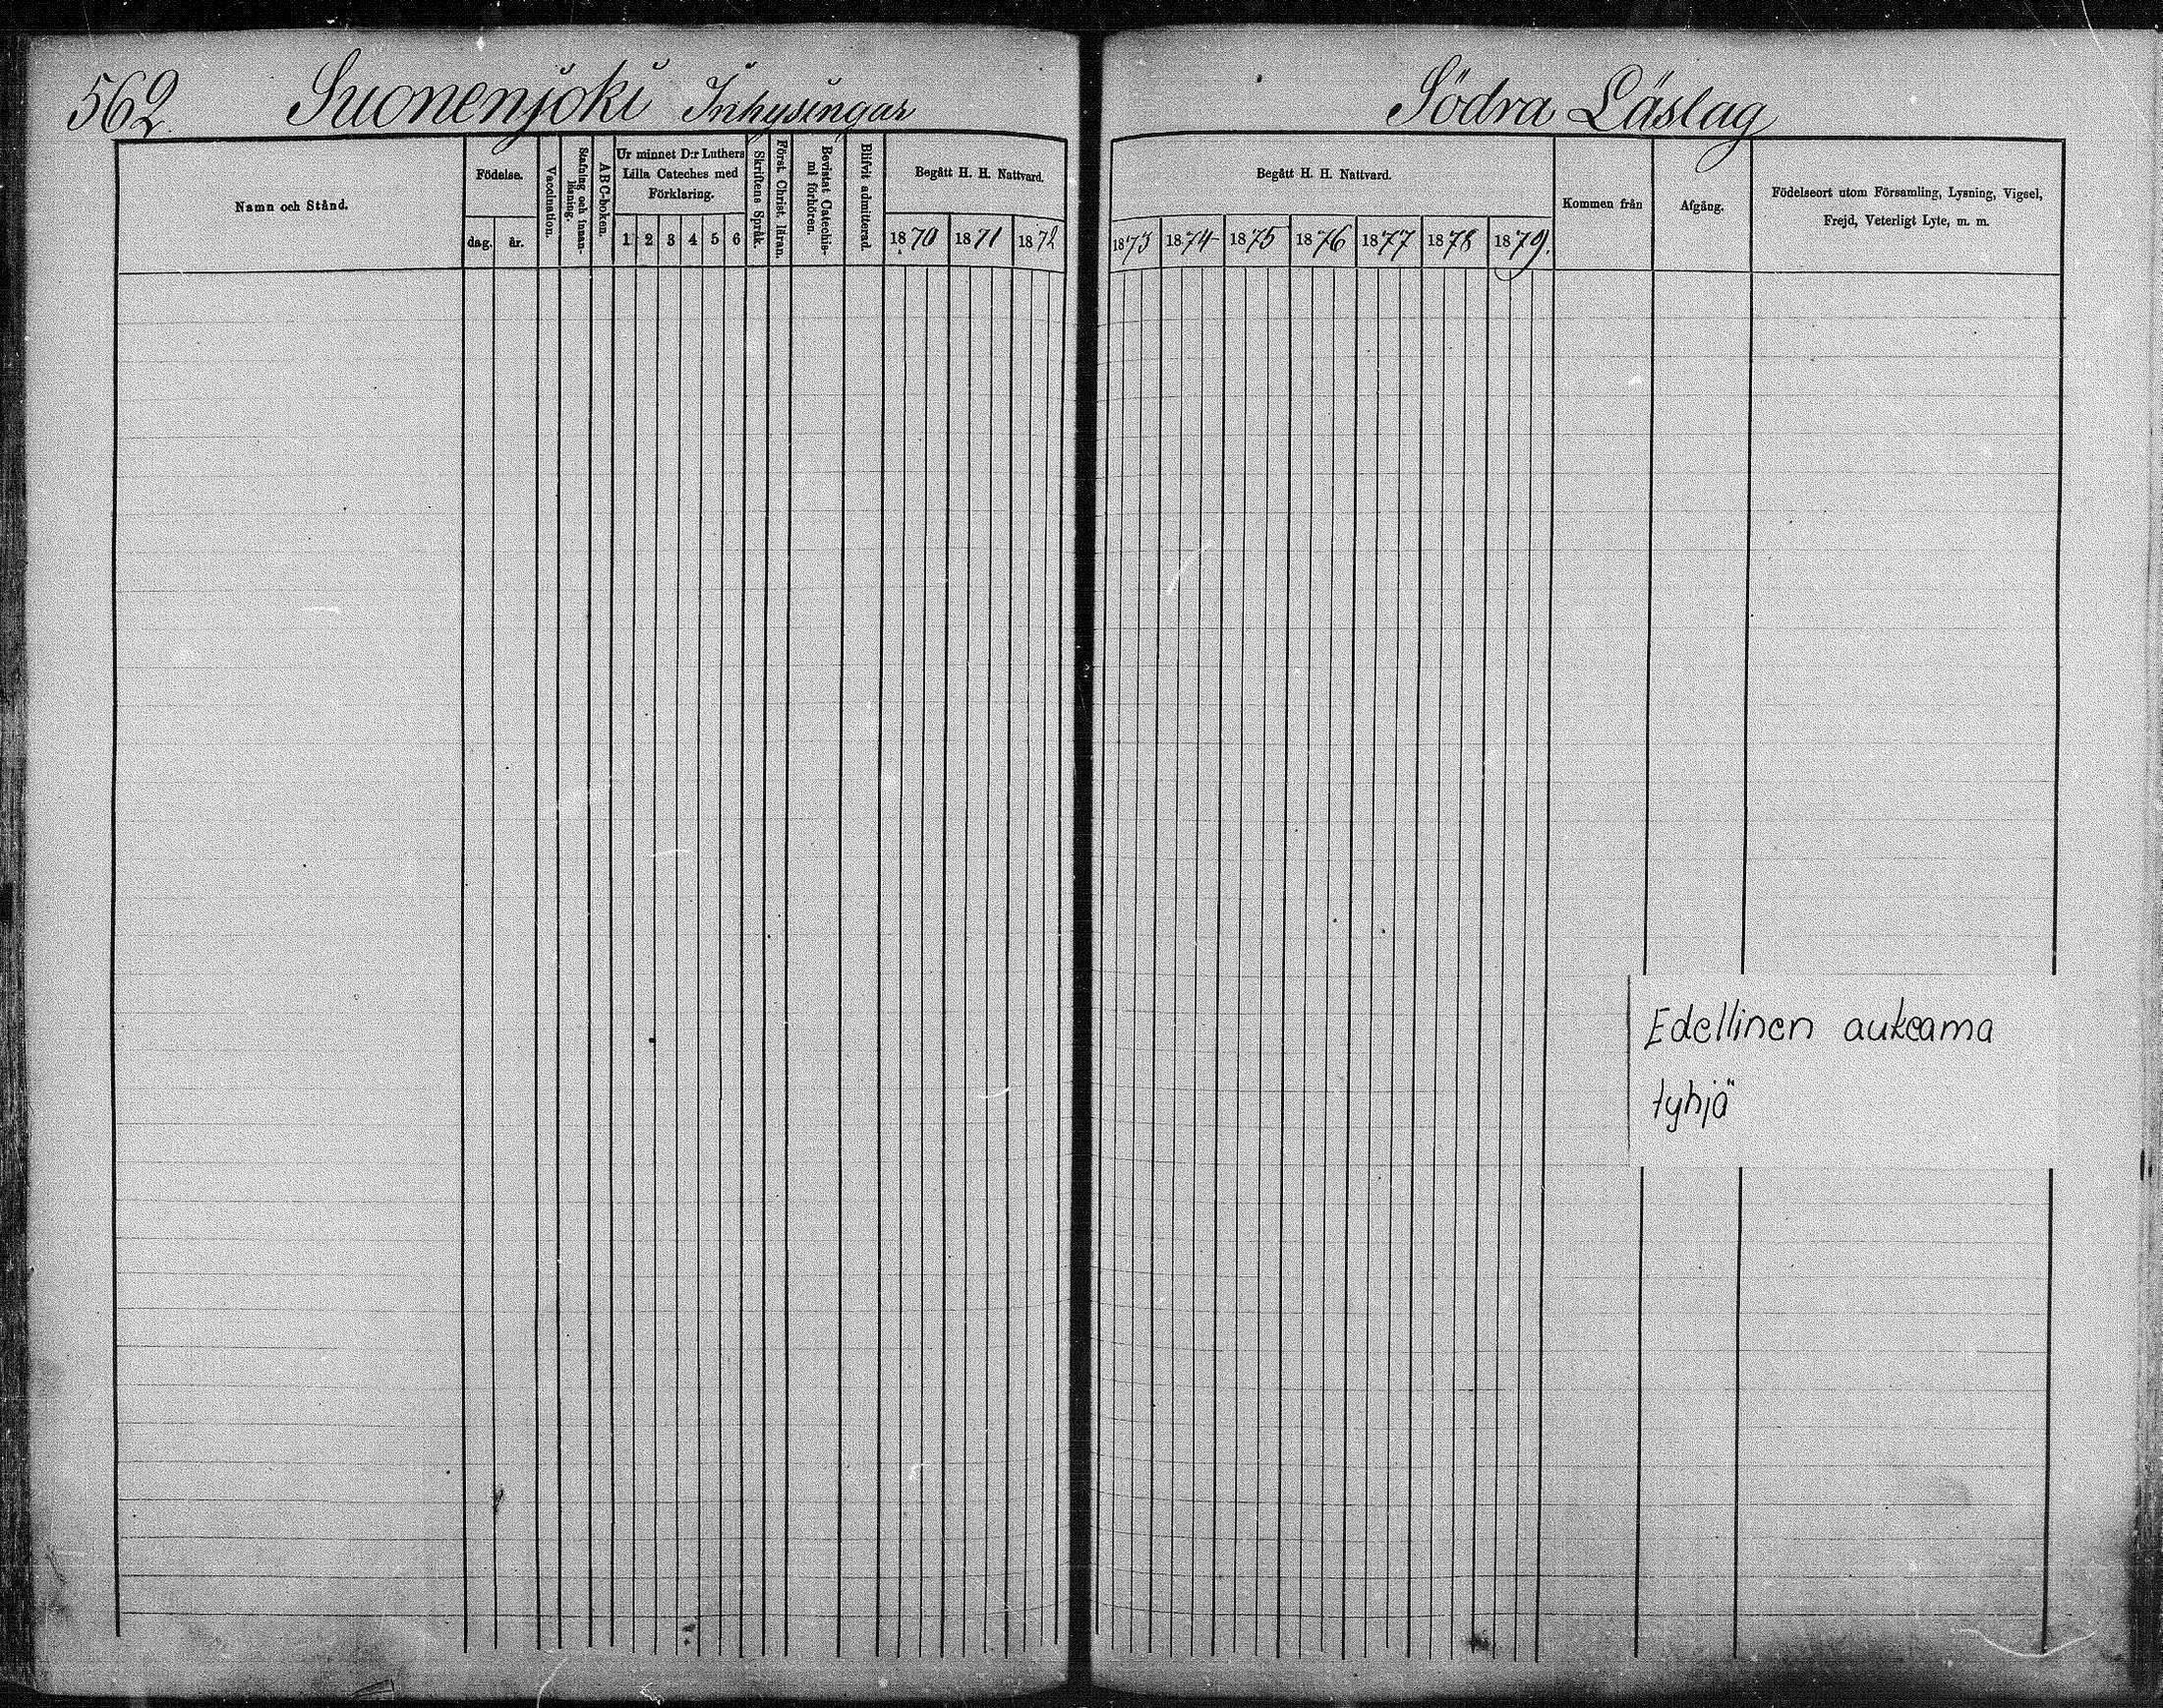 562. Suonenjoki Inhysingar
Södra Läslag
Namn och Stånd.
Födelse.
dag.
år.
Vaccination.
Stafning och innan-
läsning.
A B C-boken.
Ur minnet D:r Luthers
Lilla Cateches med
Förklaring.
1 2 3 4 5 6
Skriftens Språk.
Först. Christ. läran.
Bevistat Catechis-
mi förhören.
Blifvit admitterad.
Begått H. H. Nattvard.
1870 1871 1872
Begått H. H. Nattvard.
1873 1874 1875 1876 1877 1878 1879.
Kommen från
Afgång.
Födelseort utom Församling, Lysning, Vigsel,
Frejd, Veterligt Lyte, m. m.
Edellinen aukeama
tyhjä